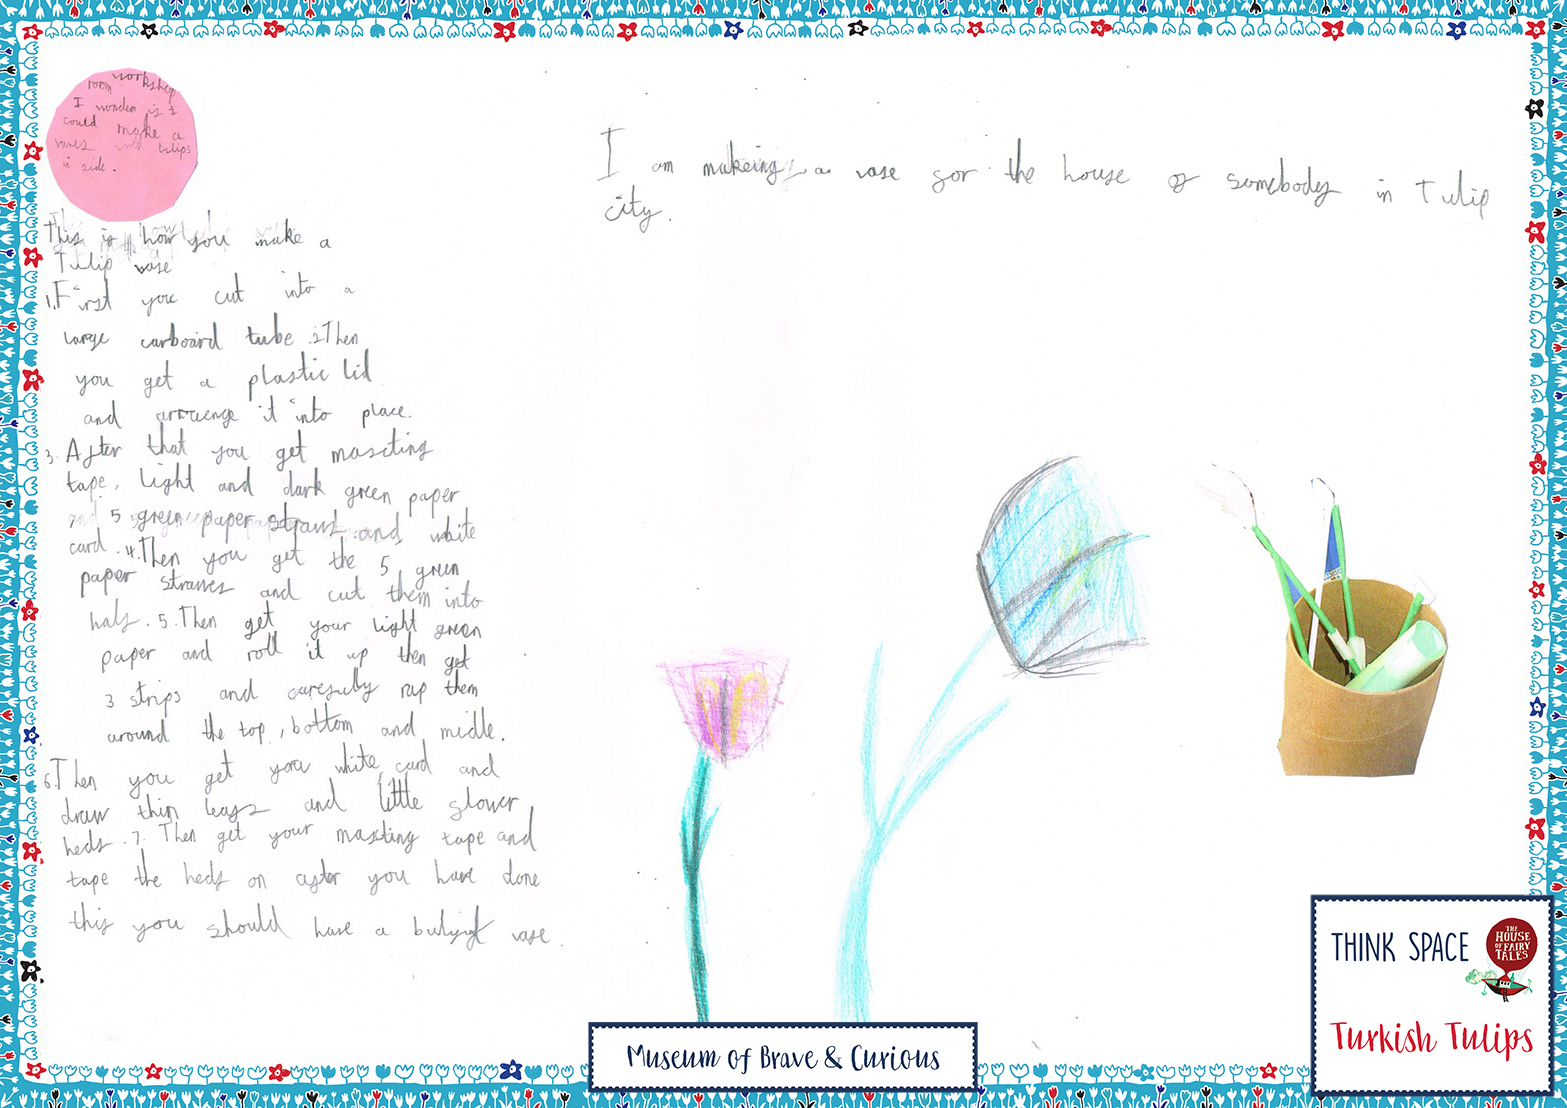 room workshop
I wonder is I
could make a
vases with tulips
in side.
This is how you make a
Tulip vase
1. First you cut into a
large carboard tube .2Then
you get a plastic lid
and arrrenge it into place.
3. After that you get mascting
tape, light and dark green paper
and 5 green paper straws and white
card .4.Then you get the 5 green
paper strawes and cut them into
half. 5.Then get your light green
paper and roll it up then get
3 strips and carefully rap them
around the top, bottom and midle.
6.Then you get your white card and
draw thin leafs and little flower
heds .7. Then get your mascting tape and
tape the heds on after you have done
this you should have a vase.
I am makeing a vase for the house of somebody in Tulip
city.
THE
HOUSE
OF FAIRY
TALES
THINK SPACE
Turkish Tulips
Museum of Brave & Curious